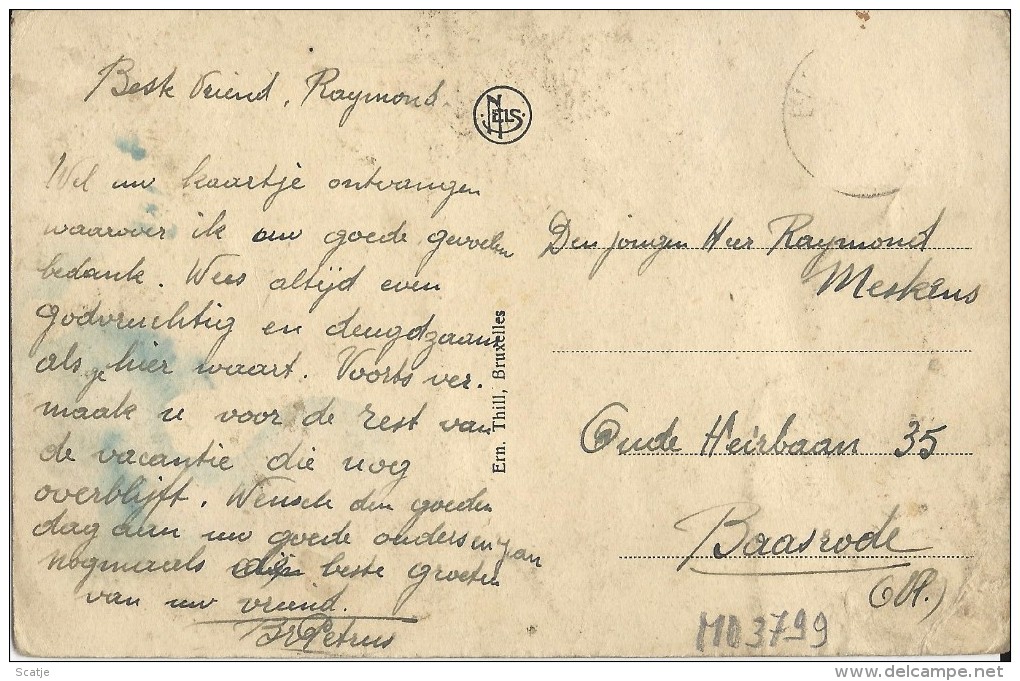 Beste Vriend, Raymond.
Wel uw kaartje ontvangen
waarover ik uw goede gevoelen
bedank. Wees altijd even
godvruchtig en deugdzaam
als ge hier waart. Voorts ver-
maak u voor de rest van
de vacantie die nog
overblijft. Wensch den goeden
dag aan uw goede ouders en Jan
nogmaals beste groeten
van uw vriend.
Br Petrus
NELS
Ern. Thill, Bruxelles
Den jongen Heer Raymond
Meskens
Oude Heirbaan 35
Baasrode
(Ovl.)
MD3799
Scatje
delcampe.net